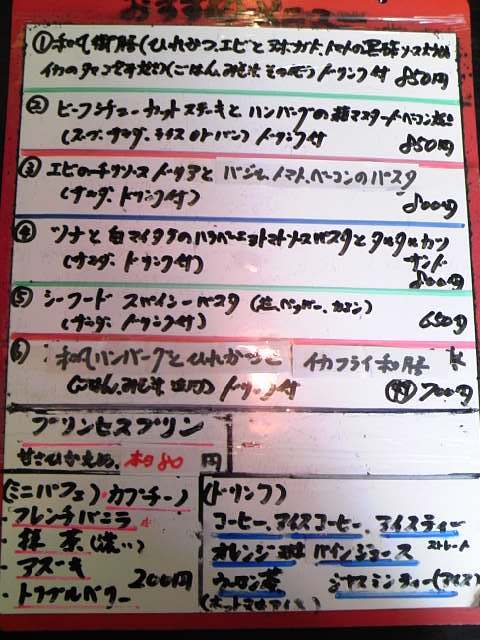 おすすめメニュー
① 和風御膳(ひれかつ、エビとアボカド、トマトの黒酢ソース
イカの (ごはん、みそ汁、 ドリンク付 850円
② ビーフシチュー カットステーキと ハンバーグの 粒マスタードベーコン
(スープ、サラダ、ライス or パン) ドリンク付 850円
③ エビのチリソース ドリアと バジル、トマト、ベーコンのパスタ
(サラダ、ドリンク付) 800円
④ ツナと白マイタケの トマトソースパスタと タルタルカツ
サンド
(サラダ、ドリンク付) 800円
⑤ シーフード スパイシーパスタ (塩、ペッパー、
(サラダ、ドリンク付) 650円
⑥ 和風ハンバーグとひれかつと イカフライ和膳
(ごはん、みそ汁 ドリンク付 700円
プリンセスプリン
甘さひかえめ、本日80円
(ミニパフェ)・カプチーノ
・フレンチバニラ
・抹茶(濃い)
・アズキ
・トリプルベリー 200円
(ドリンク)
コーヒー、アイスコーヒー、アイスティー
ストレート
オレンジ パインジュース
ウーロン茶 ジャスミンティー(アイス)
(ホット